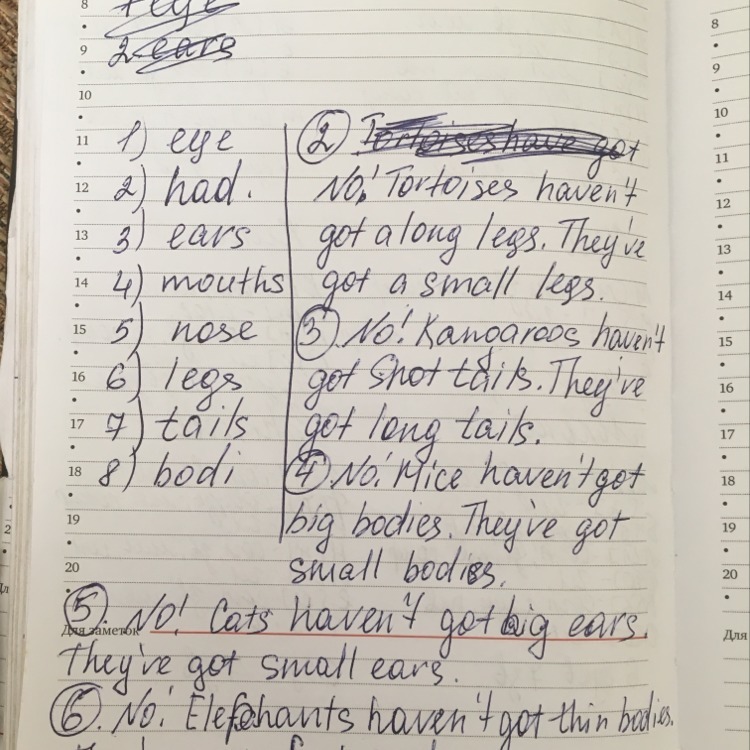 8
9 2 ears
10
11 1) eye
12 2) had.
13 3) ears
14 4) mouths
15 5) nose
16 6) legs
17 7) tails
18 8) bodi
19
20
② Tortoises have got
No! Tortoises haven't
got a long legs. They've
got a small legs.
③. No! Kangaroos haven't
got Shot tails. They've
got long tails.
④ No! Mice haven't got
big bodies. They've got
small bodies.
⑤. No! Cats haven't got big ears.
Для заметок
They've got small ears.
⑥. No! Elephants haven't got thin bodies.
8
9
10
11
12
13
14
15
16
17
18
19
20
Для